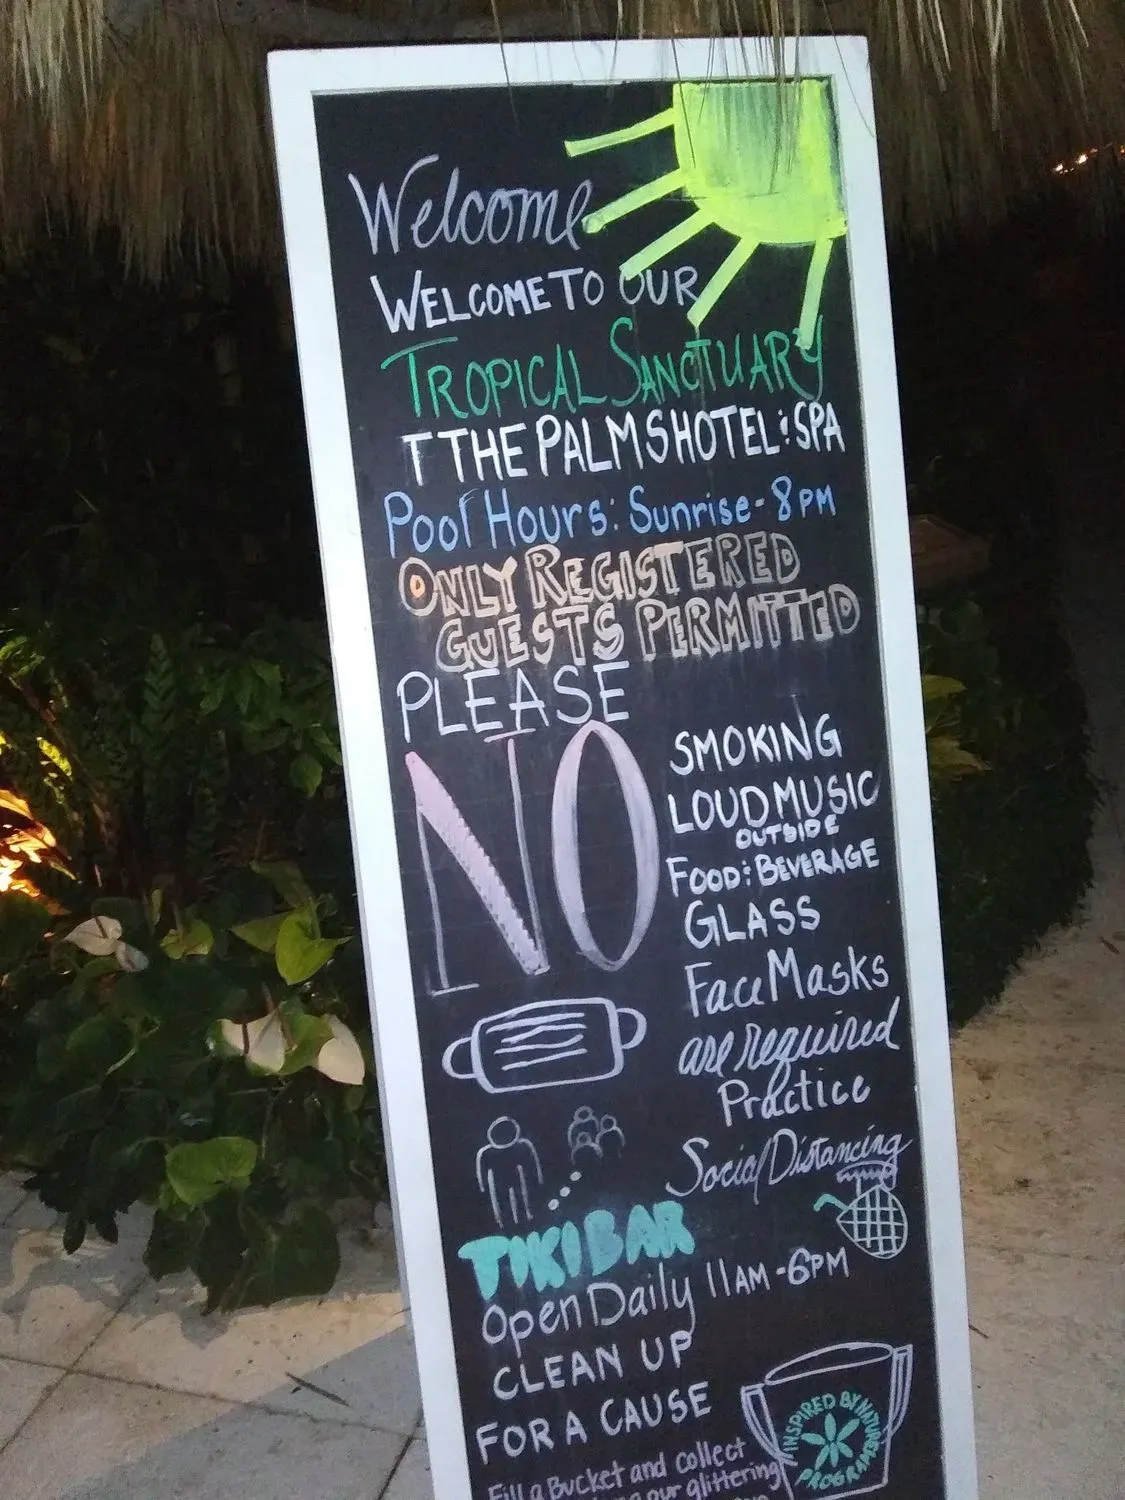 Welcome
WELCOME TO OUR
TROPICAL SANCTUARY
T THE PALMS HOTEL & SPA
Pool Hours: Sunrise - 8 PM
ONLY REGISTERED
GUESTS PERMITTED
PLEASE
NO
SMOKING
LOUD MUSIC
OUTSIDE
FOOD & BEVERAGE
GLASS
Face Masks
are required
Practice
Social Distancing
TIKI BAR
Open Daily 11 AM - 6 PM
CLEAN UP
FOR A CAUSE
Fill a Bucket and collect
our glittering
INSPIRED BY NATURE
PROGRAM